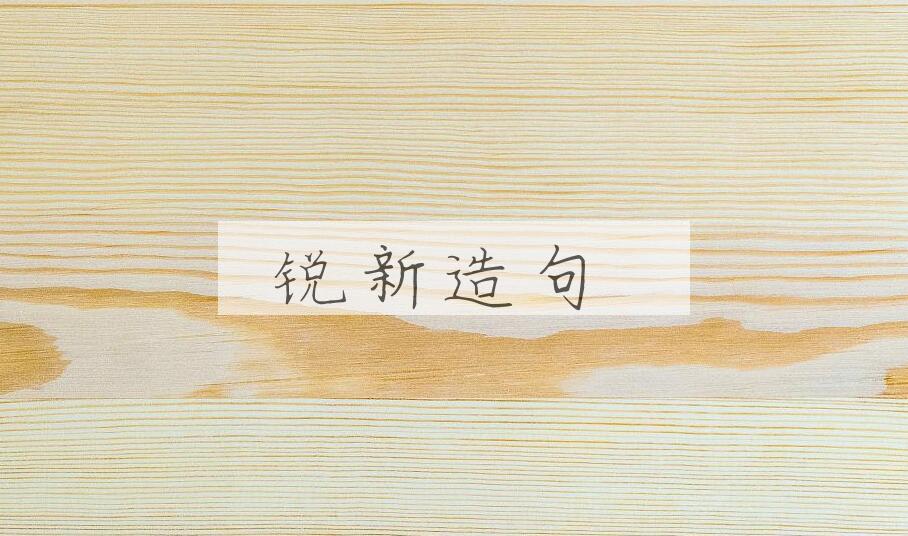 锐新造句